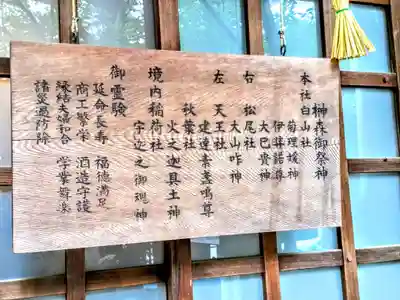 榊森御祭神
本社 白山社
菊理媛神
伊弉諾尊
大己貴神
右 松尾社
大山咋神
左 天王社
建速素戔嗚尊
秋葉社
火之迦具土神
境内稲荷社
宇迦之御魂神
御霊験
延命長寿 福徳満足
商工繁栄 酒造守護
縁結夫婦和合 学業舞楽
諸災過防除